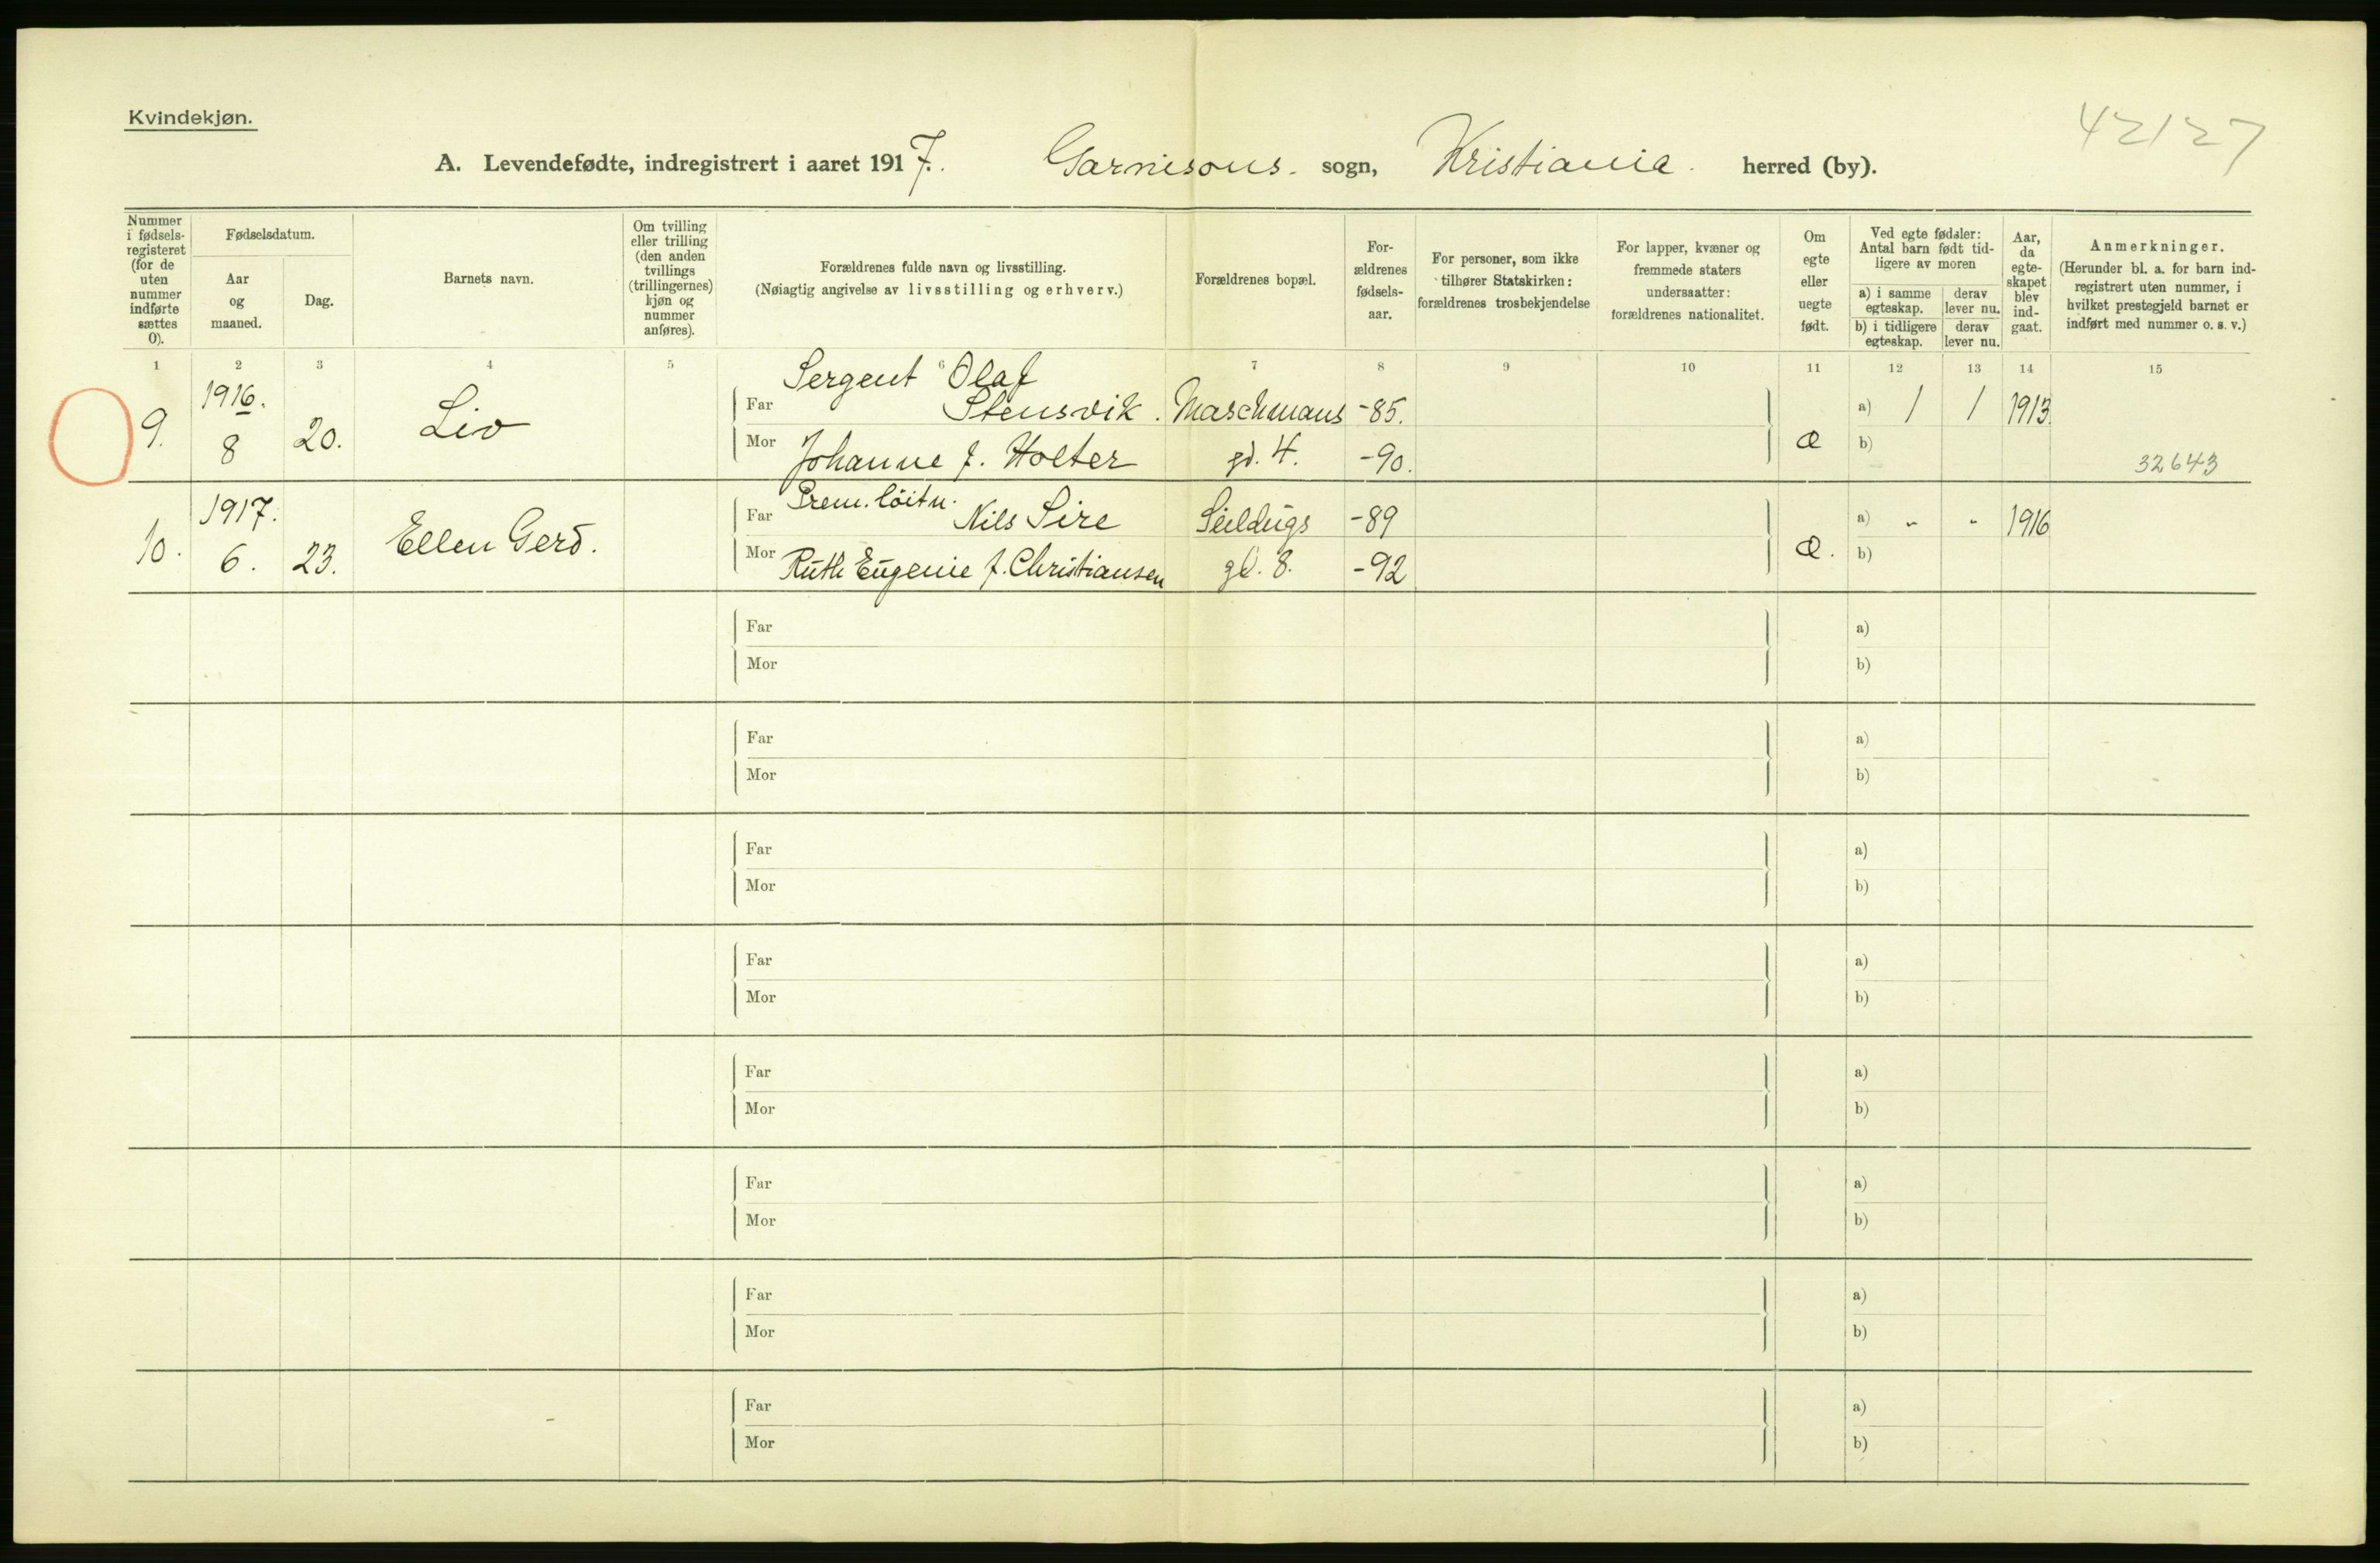 Kvindekjøn.
42127
A. Levendefødte, indregistrert i aaret 1917. Garnisons. sogn, Kristiania. herred (by).
Nummer i fødsels-registeret (for de uten nummer indførte sættes 0).
Fødselsdatum.
Aar og maaned.
Dag.
Barnets navn.
Om tvilling eller trilling (den anden tvillings (trillingernes) kjøn og nummer anføres).
Forældrenes fulde navn og livsstilling.
(Nøiagtig angivelse av livsstilling og erhverv.)
Forældrenes bopæl.
For-ældrenes fødsels-aar.
For personer, som ikke tilhører Statskirken: forældrenes trosbekjendelse
For lapper, kvæner og fremmede staters undersaatter: forældrenes nationalitet.
Om egte eller uegte født.
Ved egte fødsler: Antal barn født tid-ligere av moren
a) i samme egteskap.
derav lever nu.
b) i tidligere egteskap.
derav lever nu.
Aar, da egte-skapet blev ind-gaat.
Anmerkninger.
(Herunder bl. a. for barn ind-registrert uten nummer, i hvilket prestegjeld barnet er indført med nummer o. s. v.)
1 2 3 4 5 6 7 8 9 10 11 12 13 14 15
9. 1916. 8 20. Liv
Far Sergent Olaf Stensvik. Maschmans -85. a) 1 1 1913.
Mor Johanne f. Holter gd. 4. -90. Æ b) 32643
10. 1917. 6. 23. Ellen Gerd.
Far Prem. löitn. Nils Sire Seildugs -89 a) - - 1916
Mor Ruth Eugenie f. Christiansen gd. 8. -92 Æ. b)
Far a)
Mor b)
Far a)
Mor b)
Far a)
Mor b)
Far a)
Mor b)
Far a)
Mor b)
Far a)
Mor b)
Far a)
Mor b)
Far a)
Mor b)